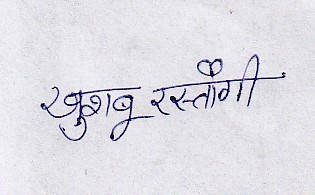 खुशबू रस्तौगी